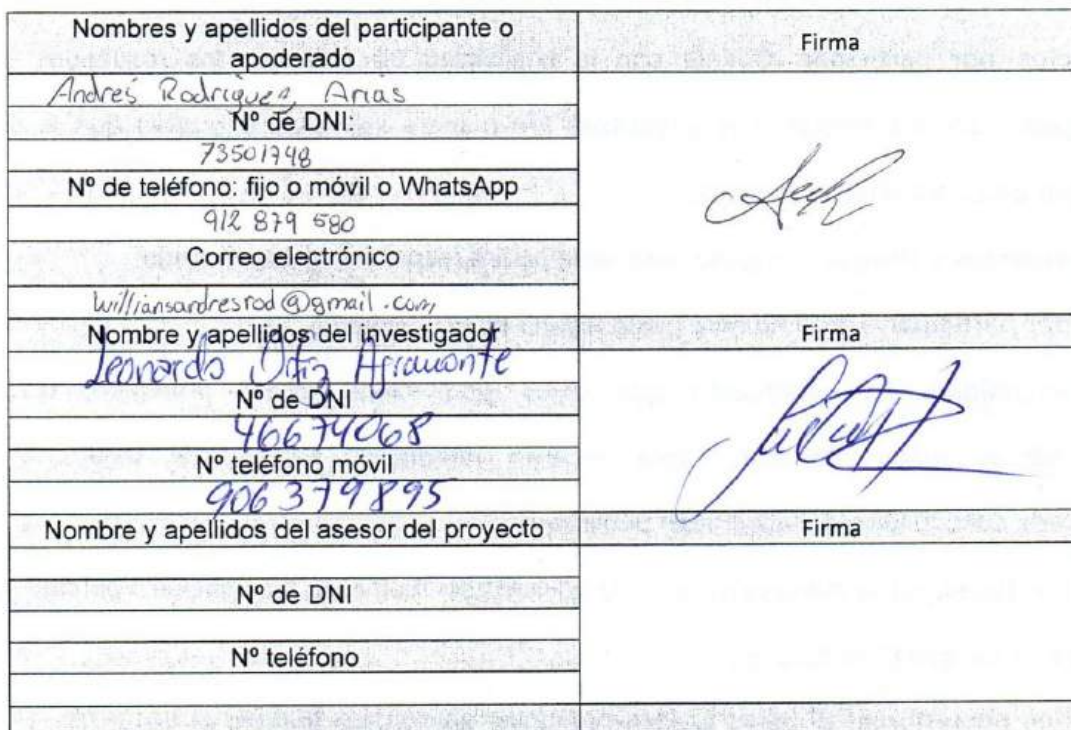 Nombres y apellidos del participante o
apoderado
Firma
Andres Rodriguez Arias
Nº de DNI:
73501748
Nº de teléfono: fijo o móvil o WhatsApp
912 879 580
Correo electrónico
williansandresrod@gmail.com
Nombre y apellidos del investigador
Firma
Leonardo Ortiz Arramonte
Nº de DNI
46674068
Nº teléfono móvil
906379895
Nombre y apellidos del asesor del proyecto
Firma
Nº de DNI
Nº teléfono